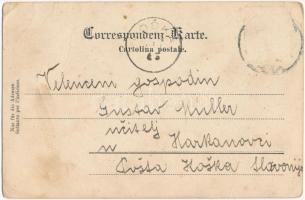 Correspondenz-Karte.
Cartolina postale.
Nur für die Adresse
Velecijen. gospodin
Gustav Müller
učitelj
u Harkanovci
Pošta Koška Slavonija